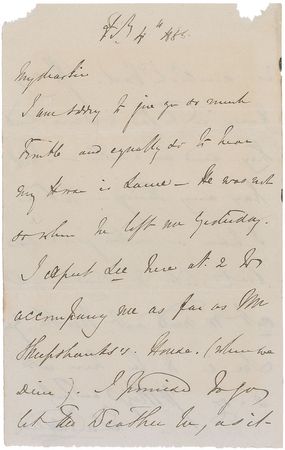 My dear Sir
I am sorry to give you so much
trouble and equally so to hear
my Horse is Lame – He was not
so when he left me Yesterday.
I expect Lee here at 2 to
accompany me as far as Mr
Sheepshanks's House. (where we
dine). I promised to go
let the Weather be, as it